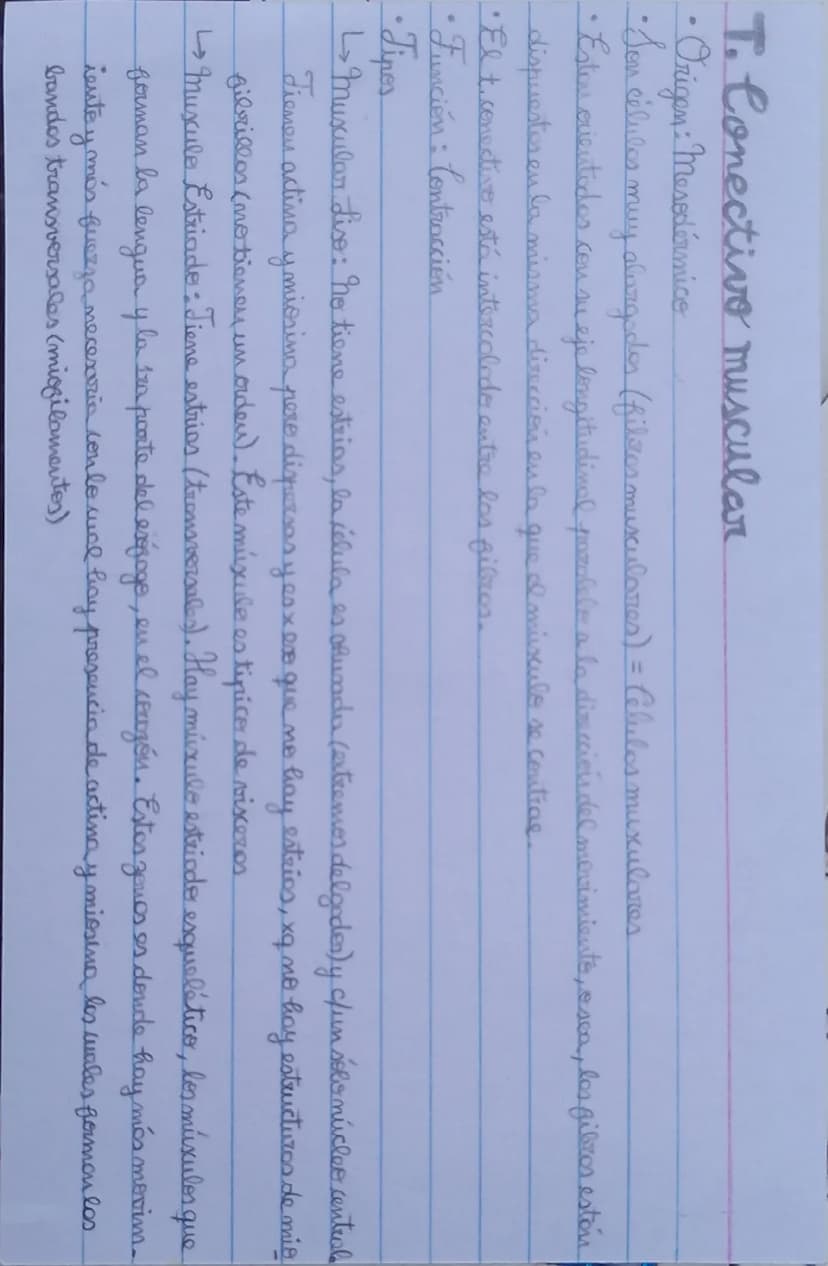 T. Conectivo muscular
• Origen: Mesodérmico
• Son células muy alargadas (fibras musculares) = Células musculares
• Están orientadas con su eje longitudinal paralelo a la dirección del movimiento, osea, las fibras están
dispuestas en la misma dirección en la que el músculo se contrae.
• El t. conectivo está intercalado entre las fibras.
• Función: Contracción
• Tipos
↳ Muscular liso: No tiene estrías, la célula es ahusada (extremos delgados) y c/un sólo núcleo central
Tienen actina y miosina pero dispersas y es x eso que no hay estrías, xq no hay estructuras de mio-
fibrillas (no tienen un orden). Este músculo es típico de vísceras
↳ Músculo Estriado: Tiene estrías (transversales). Hay músculo estriado esquelético, los músculos que
forman la lengua y la 1ra parte del esófago, en el corazón. Estas zonas es donde hay más movim-
iento y más fuerza necesaria con lo cual hay presencia de actina y miosina las cuales forman las
bandas transversales (miofilamentos)